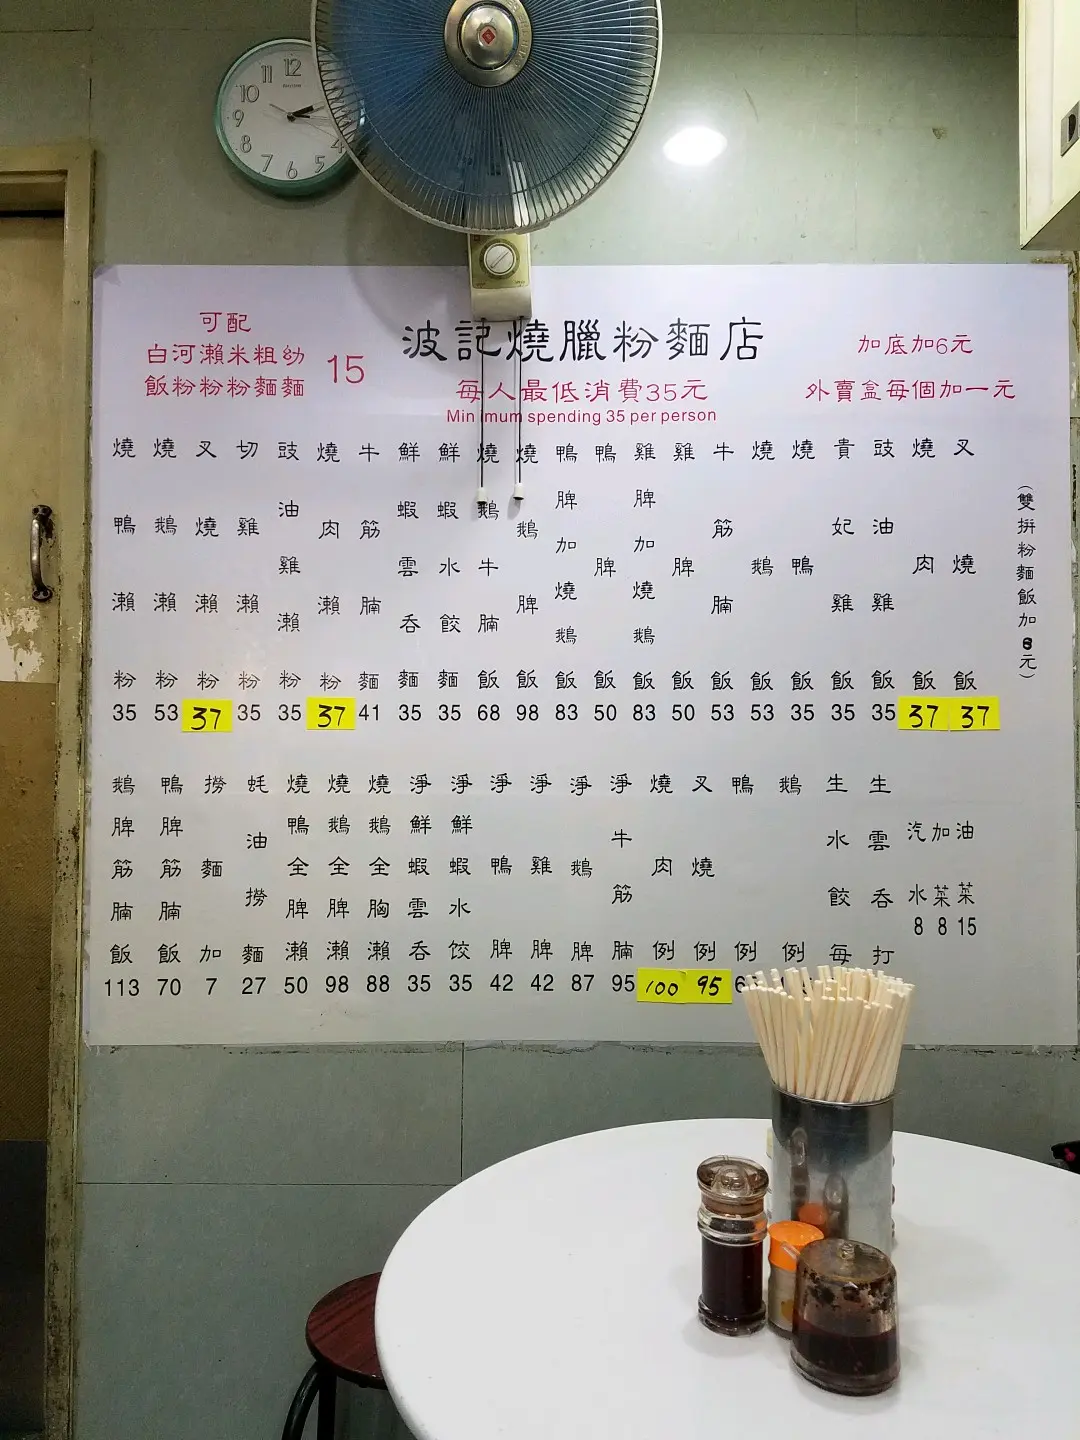 波記燒臘粉麵店
可配
白河瀨米粗幼
飯粉粉粉麵麵
15
每人最低消費35元
Minimum spending 35 per person
加底加6元
外賣盒每個加一元
(雙拼粉麵飯加8元)
燒鴨瀨粉 35
燒鵝瀨粉 53
叉燒瀨粉 37
切雞瀨粉 35
豉油雞瀨粉 35
燒肉瀨粉 37
牛筋腩麵 41
鮮蝦雲吞麵 35
鮮蝦水餃麵 35
燒鵝牛腩飯 68
燒鵝脾飯 98
鴨脾加燒鵝飯 83
鴨脾飯 50
雞脾加燒鵝飯 83
雞脾飯 50
牛筋腩飯 53
燒鵝飯 53
燒鴨飯 35
貴妃雞飯 35
豉油雞飯 35
燒肉飯 37
叉燒飯 37
鵝脾筋腩飯 113
鴨脾筋腩飯 70
撈麵加 7
蚝油撈麵 27
燒鴨全脾瀨 50
燒鵝全脾瀨 98
燒鵝全胸瀨 88
淨鮮蝦雲吞 35
淨鮮蝦水饺 35
淨鴨脾 42
淨雞脾 42
淨鵝脾 87
淨牛筋腩 95
燒肉例 100
叉燒例 95
鴨例
鵝例
生水餃每
生雲吞打
汽水 8
加菜 8
油菜 15
12
11
10
9
8
7
6
5
4
RHYTHM